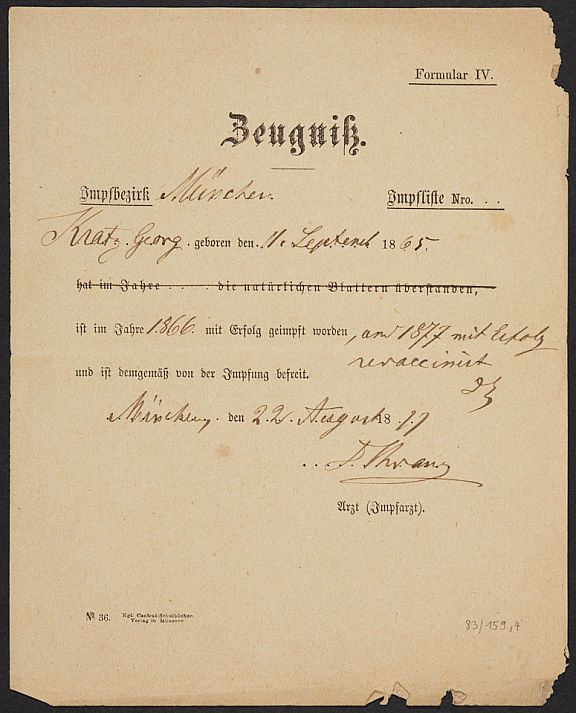 Formular IV.
Zeugniß.
Impfbezirk München. Impfliste Nro. . .
Kratz Georg. geboren den 11. Septemb 1865.
hat im Jahre . . . . . die natürlichen Blattern überstanden,
ist im Jahre 1866 mit Erfolg geimpft worden, und 1877 mit Erfolg
revaccinirt
und ist demgemäß von der Impfung befreit.
München, den 22. August 1877
Arzt (Impfarzt).
№ 36. Kgl. Central-Schulbücher-
Verlag in München.
83/159,4